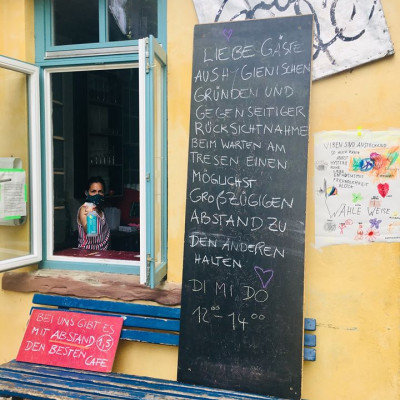 LIEBE GÄSTE
AUS HYGIENISCHEN
GRÜNDEN UND
GEGENSEITIGER
RÜCKSICHTNAHME
BEIM WARTEN AM
TRESEN EINEN
MÖGLICHST
GROßZÜGIGEN
ABSTAND ZU
DEN ANDEREN
HALTEN
DI MI DO
12⁰⁰-14⁰⁰
BEI UNS GIBT ES
MIT ABSTAND 1,5
DEN BESTEN
CAFE
VIREN SIND ANSTECKEND
WÄHLE WEISE